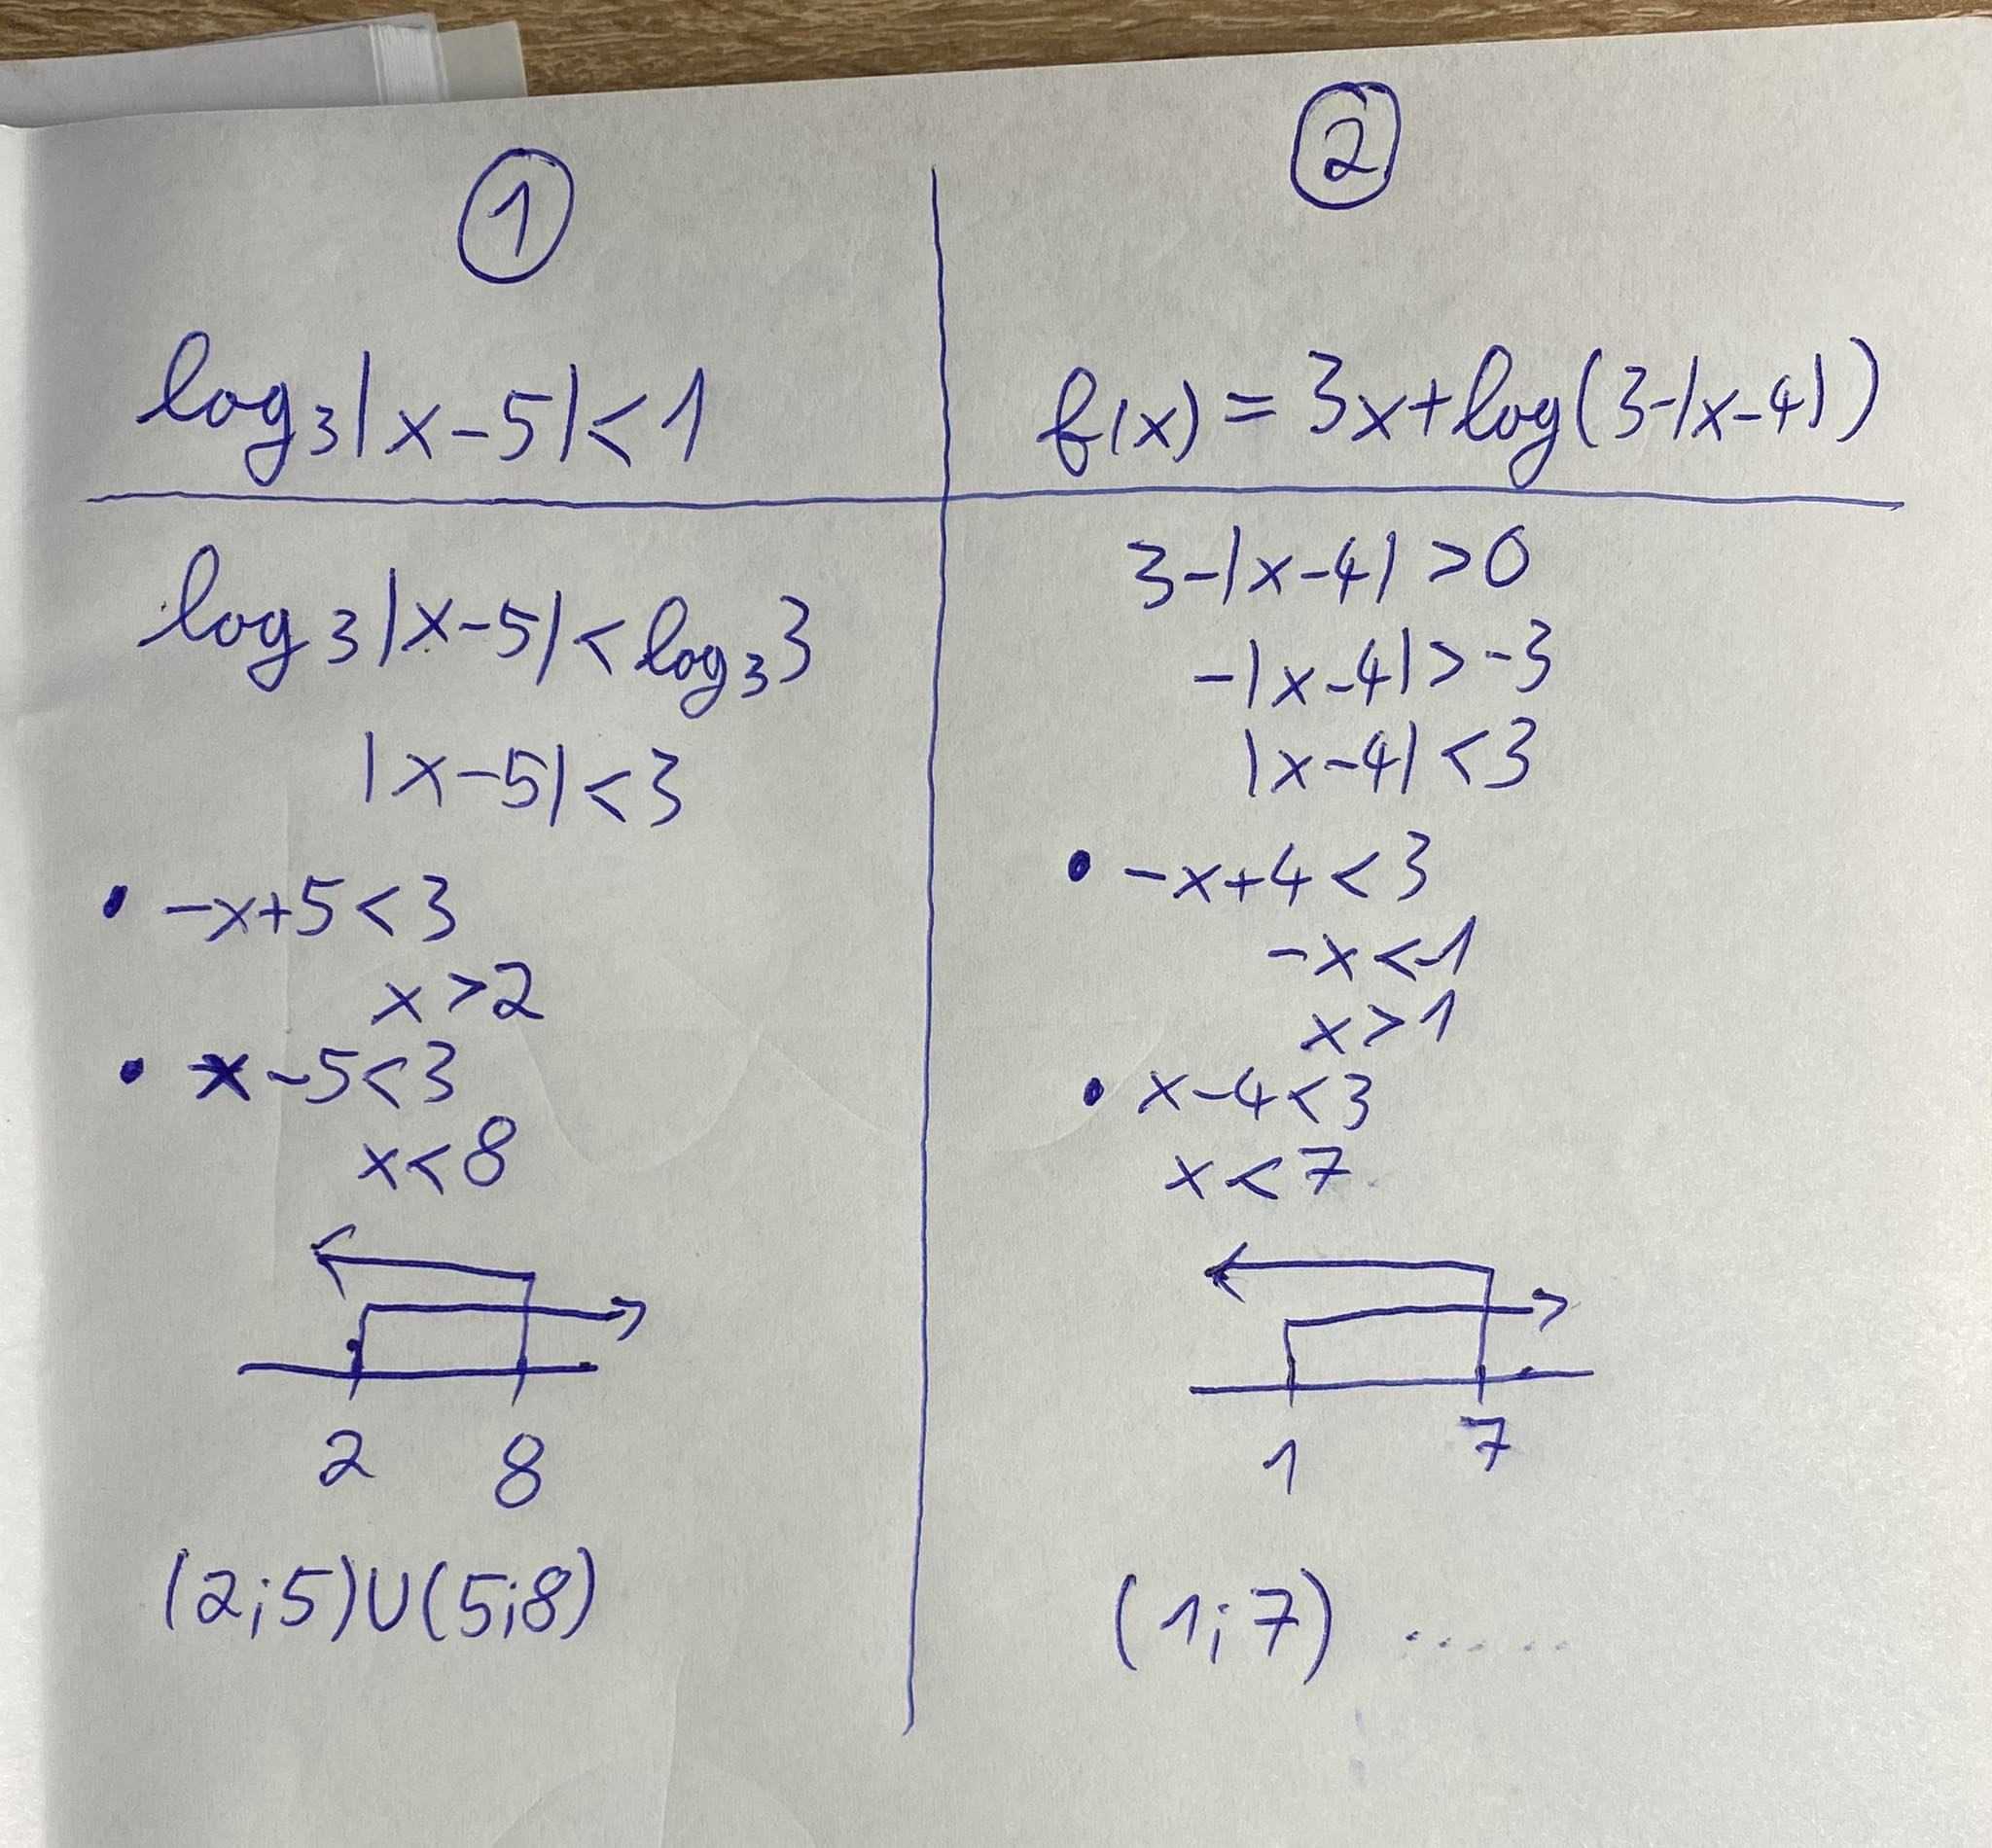 ①
log₃|x-5|<1
log₃|x-5|<log₃3
|x-5|<3
• -x+5<3
x>2
• x-5<3
x<8
2 8
(2;5)∪(5;8)
②
f(x)=3x+log(3-|x-4|)
3-|x-4|>0
-|x-4|>-3
|x-4|<3
• -x+4<3
-x<-1
x>1
• x-4<3
x<7
1 7
(1;7) .....